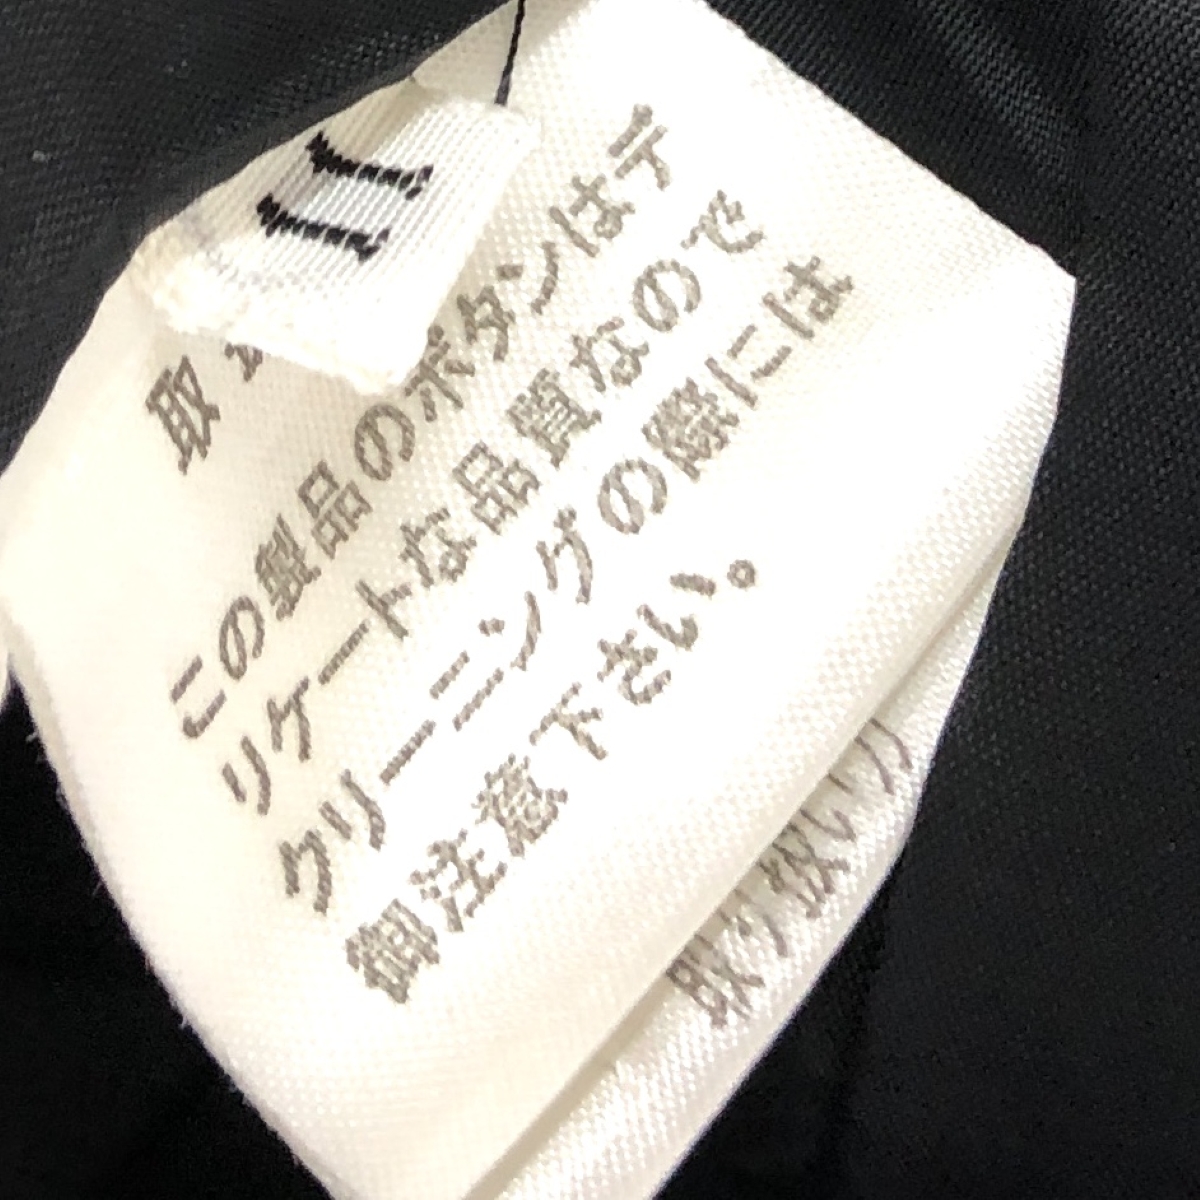 11
取
この製品のボタンはデ
リケートな品質なので
クリーニングの際には
御注意下さい。
取り扱い